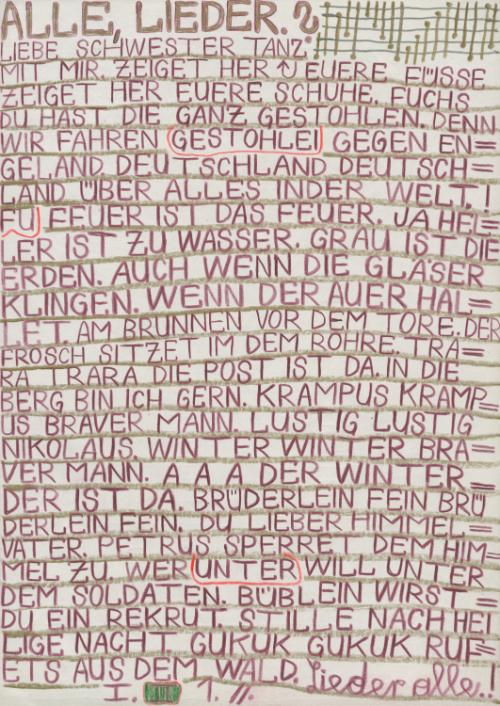 ALLE, LIEDER.
LIEBE SCHWESTER TANZ.
MIT MIR. ZEIGET HER EUERE FÜSSE
ZEIGET HER EUERE SCHUHE. FUCHS
DU HAST DIE GANZ GESTOHLEN. DENN
WIR FAHREN GESTOHLEI GEGEN EN=
GELAND DEUTSCHLAND DEUTSCH=
LAND ÜBER ALLES INDER WELT.!
FU FEUER IST DAS FEUER. JA HEL=
LER IST ZU WASSER. GRAU IST DIE
ERDEN. AUCH WENN DIE GLÄSER
KLINGEN. WENN DER AUER HAL=
LET. AM BRUNNEN VOR DEM TORE. DER
FROSCH SITZET IM DEM ROHRE. TRA=
RA TRARA DIE POST IST DA. IN DIE
BERG BIN ICH GERN. KRAMPUS KRAMP=
US BRAVER MANN. LUSTIG LUSTIG
NIKOLAUS. WINTER WINTER BRA=
VER MANN. A A A DER WINTER=
DER IST DA. BRÜDERLEIN FEIN BRÜ
DERLEIN FEIN. DU LIEBER HIMMEL=
VATER. PETRUS SPERRE DEM HIM=
MEL ZU. WER UNTER WILL UNTER
DEM SOLDATEN. BÜBLEIN WIRST=
DU EIN REKRUT. STILLE NACH HEI
LIGE NACHT. GUKUK GUKUK RUF=
ETS AUS DEM WALD. Lieder alle.!
I. 1. II.